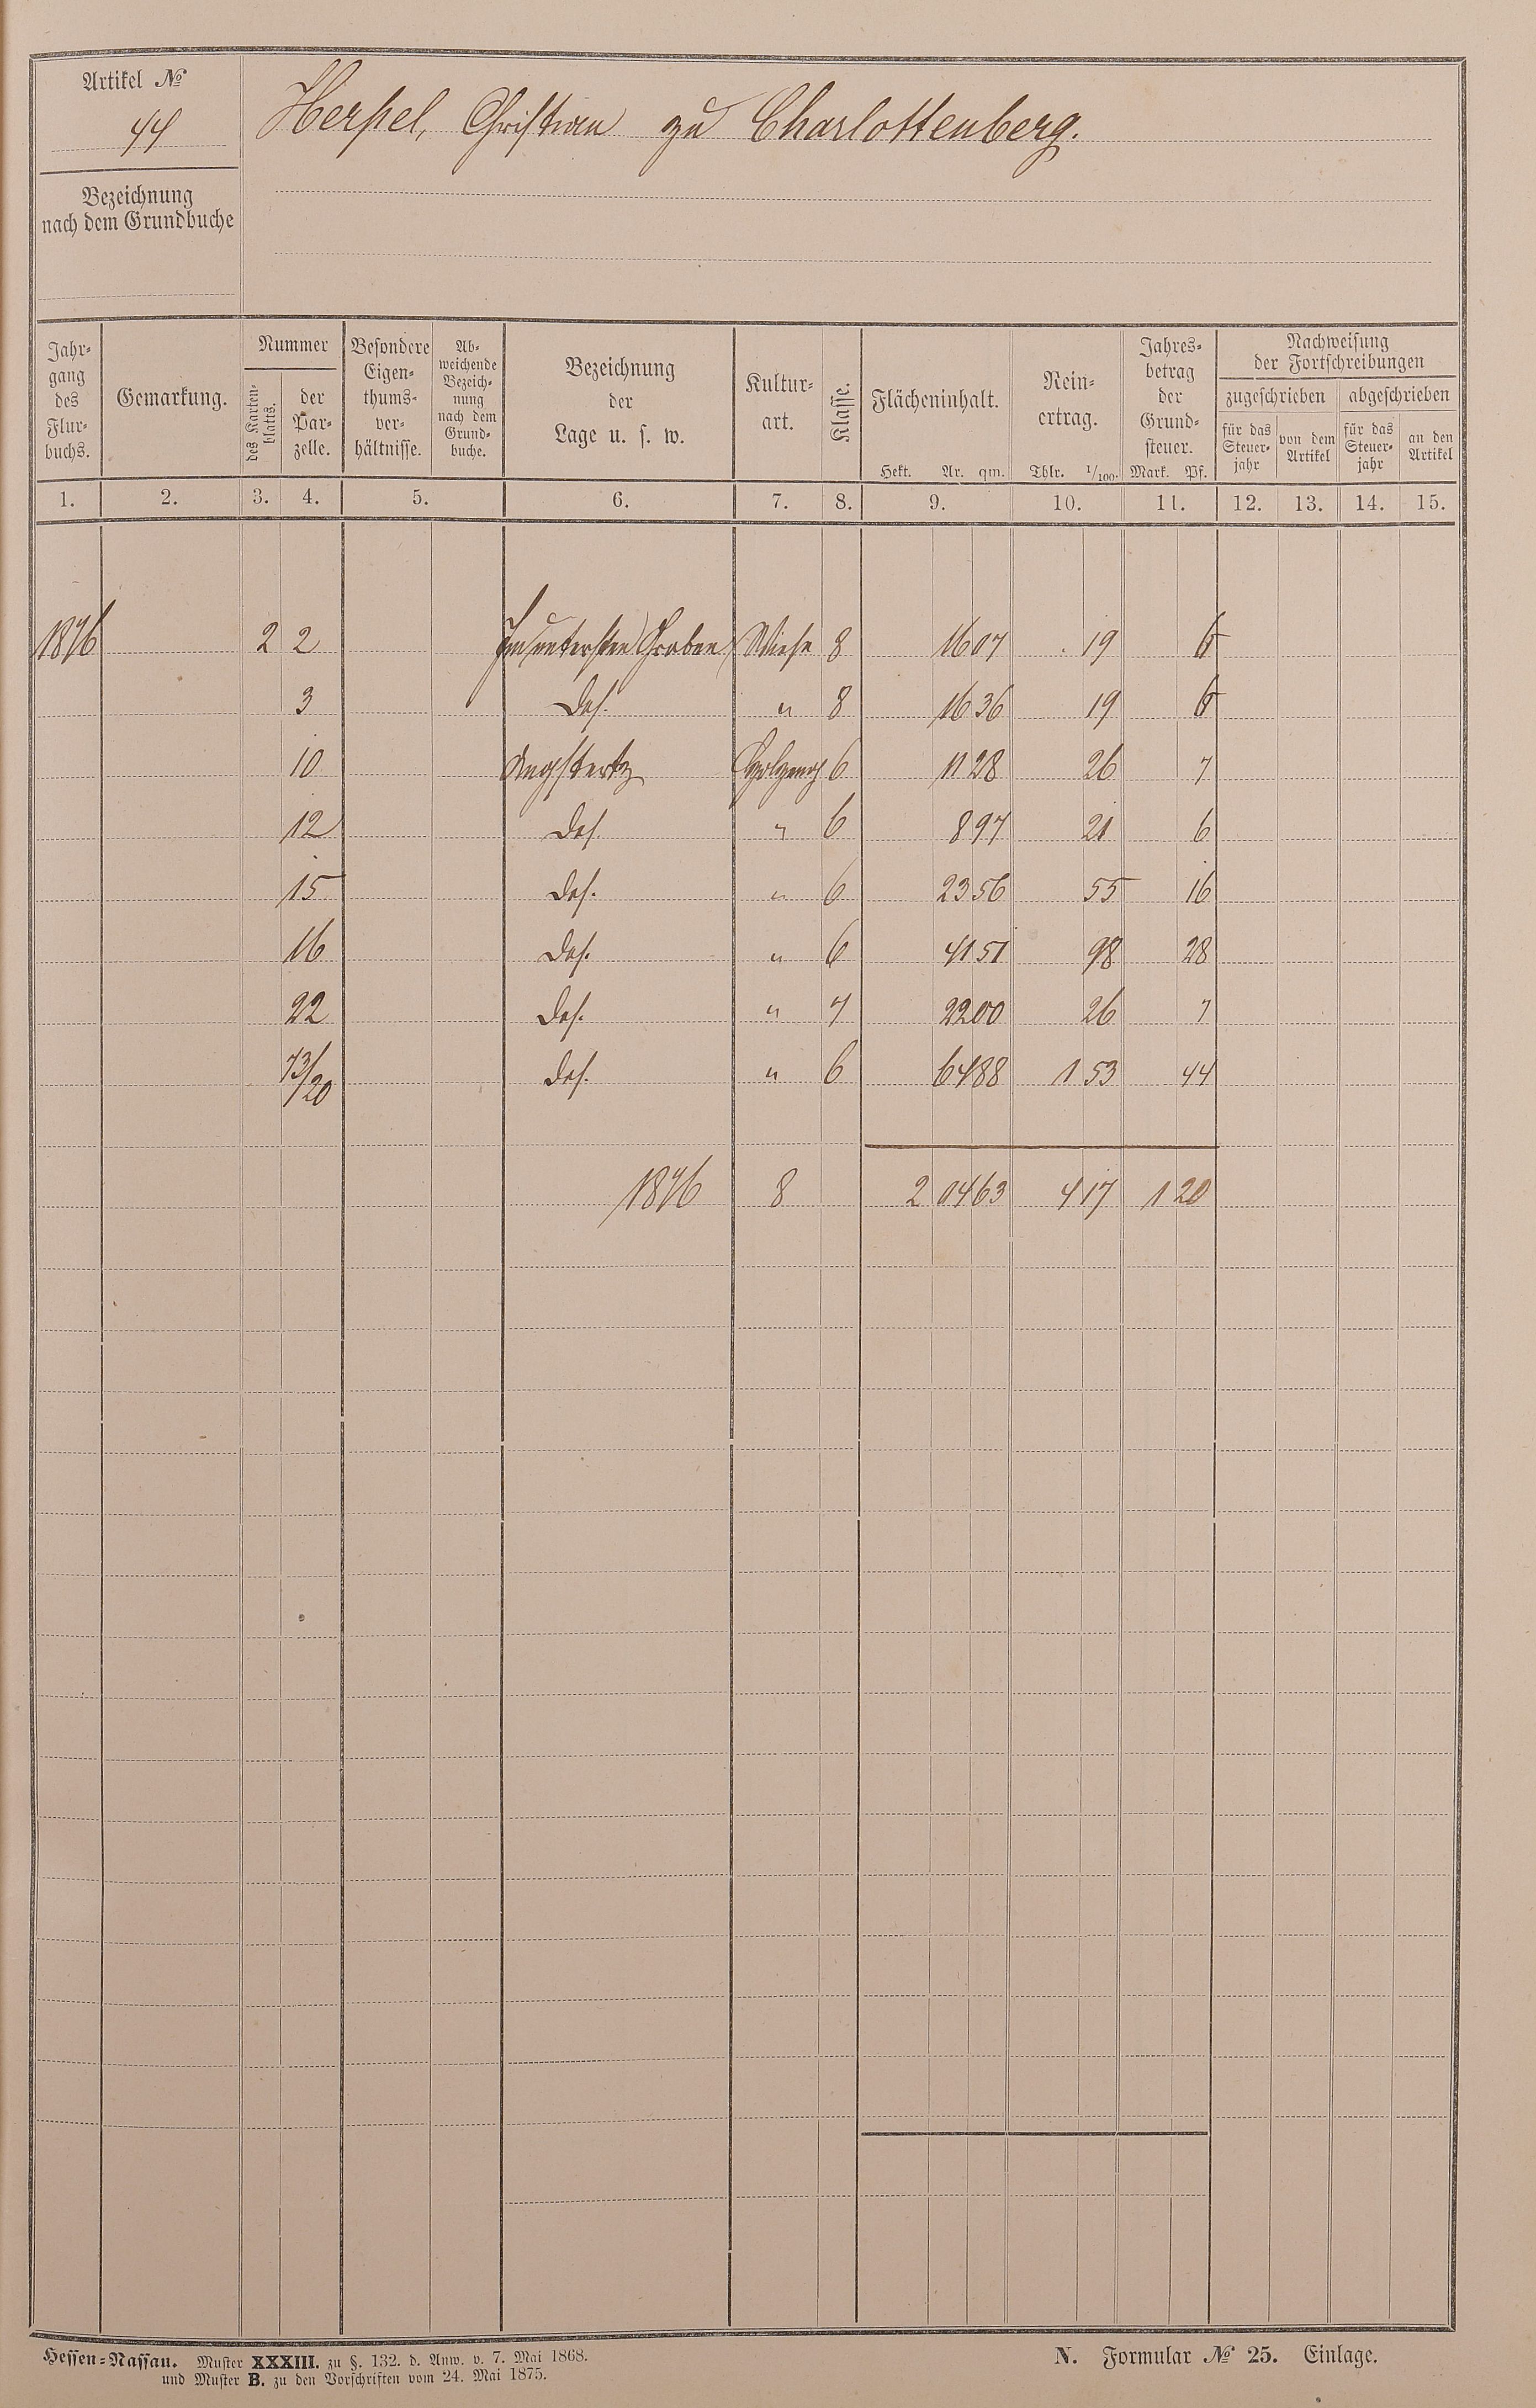 Artikel №
44
Herpel, Christian zu Charlottenberg.
Bezeichnung
nach dem Grundbuche
Jahr-
gang
des
Flur-
buchs.
Gemarkung.
Nummer
des Karten-
blatts.
der
Par-
zelle.
Besondere
Eigen-
thums-
ver-
hältnisse.
Ab-
weichende
Bezeich-
nung
nach dem
Grund-
buche.
Bezeichnung
der
Lage u. s. w.
Kultur-
art.
Klasse.
Flächeninhalt.
Hekt. Ar. qm.
Rein-
ertrag.
Thlr. 1/100.
Jahres-
betrag
der
Grund-
steuer.
Mark. Pf.
Nachweisung
der Fortschreibungen
zugeschrieben abgeschrieben
für das
Steuer-
jahr
von dem
Artikel
für das
Steuer-
jahr
an den
Artikel
1. 2. 3. 4. 5. 6. 7. 8. 9. 10. 11. 12. 13. 14. 15.
1876 2 2 Im untersten Graben Wiese 8 16 07 19
3 das. " 8 16 36 19
10 6 11 28 26 7
12 das. " 6 8 97 21 6
15 das. " 6 23 56 55 16
16 das. " 6 41 51 98 28
22 das. " 7 22 00 26 7
73/20 das. " 6 64 88 1 53 44
1876 8 2 04 63 4 17 1 20
Hessen-Nassau. Muster XXXIII. zu §. 132. d. Anw. v. 7. Mai 1868.
und Muster B. zu den Vorschriften vom 24. Mai 1875.
N. Formular № 25. Einlage.